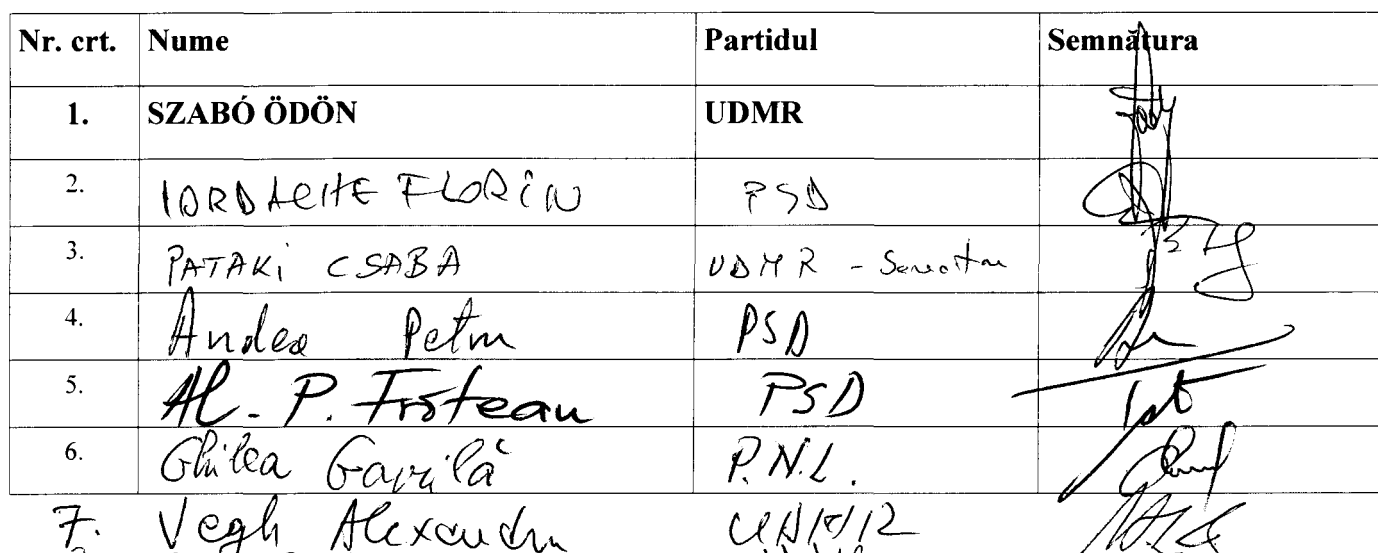 Nr. crt. Nume Partidul Semnătura
1. SZABÓ ÖDÖN UDMR
2. IORDACHE FLORIN PSD
3. PATAKI CSABA UDMR - Senator
4. Andea Petru PSD
5. Al. P. Frăteanu PSD
6. Ghilea Gavrilă P.N.L.
7. Vegh Alexandru UDMR